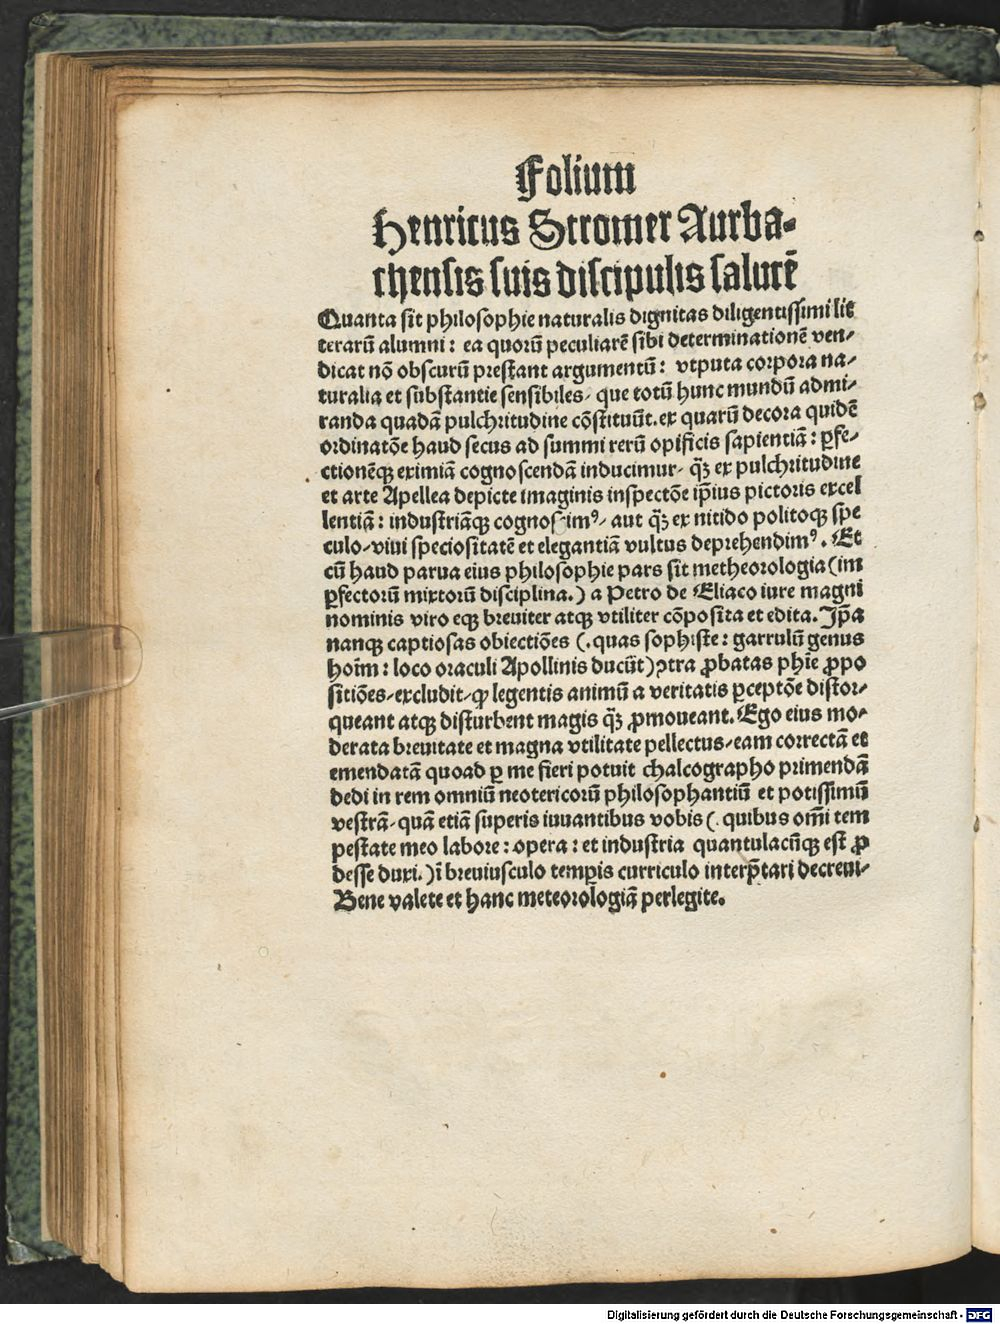 Folium
Henricus Stromer Aurba-
chensis suis discipulis salutē
Quanta sit philosophie naturalis dignitas diligentissimi lit
terarū alumni: ea quorū peculiarē sibi determinationē ven-
dicat nō obscurū prestant argumentū: vtputa corpora na-
turalia et substantie sensibiles, que totū hunc mundū admi-
randa quadā pulchritudine cōstituūt. ex quarū decora quidē
ordinatōe haud secus ad summi rerū opificis sapientiā: ꝑfe-
ctionēqꝫ eximiā cognoscendā inducimur, q̄ꝫ ex pulchritudine
et arte Apellea depicte imaginis inspectōe ip̄ius pictoris excel
lentiā: industriāqꝫ cognoscimꝰ, aut q̄ꝫ ex nitido politoqꝫ spe
culo, viui speciositatē et elegantiā vultus deprehendimꝰ. Et
cū haud parua eius philosophie pars sit metheorologia (im
ꝑfectorū mixtorū disciplina.) a Petro de Eliaco iure magni
nominis viro eqꝫ breuiter atqꝫ vtiliter cōposita et edita. Ip̄a
nanqꝫ captiosas obiectiōes (.quas sophiste: garrulū genus
hoīm: loco oraculi Apollinis ducūt) ꝯtra ꝓbatas phīe ꝓpo
sitiōes, excludit, ꝙ legentis animū a veritatis ꝑceptōe distor-
queant atqꝫ disturbent magis q̄ꝫ ꝓmoueant. Ego eius mo-
derata breuitate et magna vtilitate pellectus, eam correctā et
emendatā quoad ꝑ me fieri potuit chalcographo primendā
dedi in rem omniū neotericorū philosophantiū et potissimū
vestrā, quā etiā superis iuuantibus vobis (. quibus om̄i tem
pestate meo labore: opera: et industria quantulacūqꝫ est ꝓ
desse duxi.) ī breuiusculo temꝑis curriculo interp̄tari decreui,
Bene valete et hanc meteorologiā perlegite.
Digitalisierung gefördert durch die Deutsche Forschungsgemeinschaft - DFG